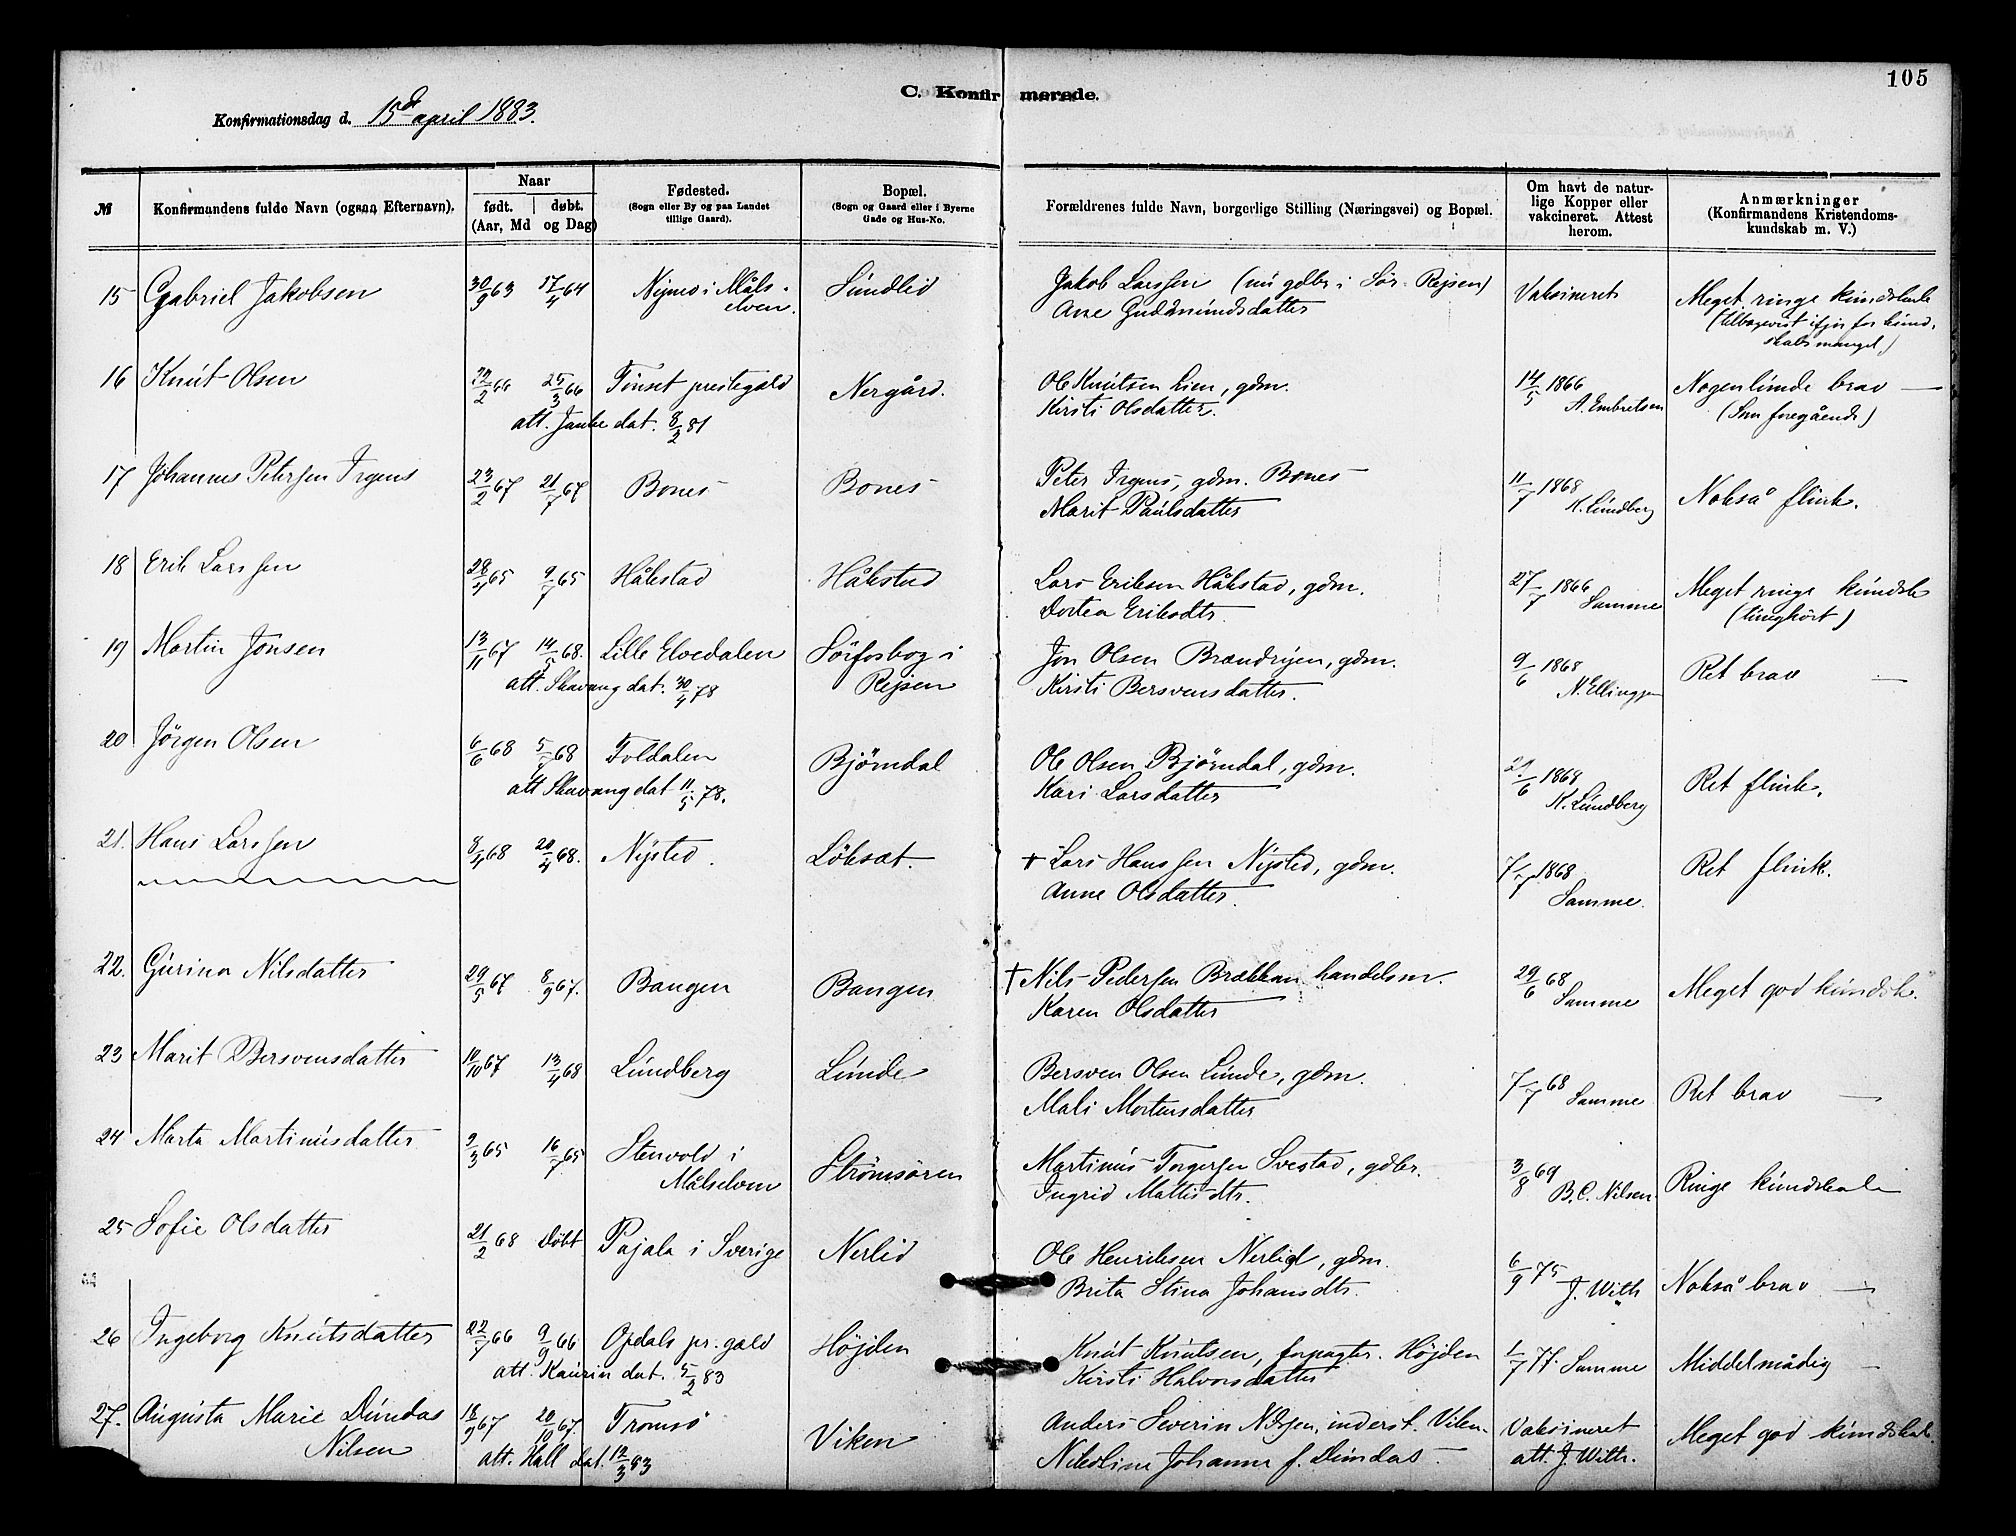 105
C. Konfirmerede.
Konfirmationsdag d. 15de april 1883.
№ | Konfirmandens fulde Navn (ogsaa Efternavn). | Naar født. | døbt. (Aar, Md og Dag) | Fødested. (Sogn eller By og paa Landet tillige Gaard). | Bopæl. (Sogn og Gaard eller i Byerne Gade og Hus-No. | Forældrenes fulde Navn, borgerlige Stilling (Næringsvei) og Bopæl. | Om havt de naturlige Kopper eller vakcineret. Attest herom. | Anmærkninger (Konfirmandens Kristendomskundskab m. V.)
15 Gabriel Jakobsen 30/9 63 17/4 64 Nymo i Måls- Sundlid Jakob Larssen (nu gdbr i Sør-Rejsen) Vaksineret Meget ringe kundskab
elven. Ane Gudmundsdatter (tilbagevist ifjor for kund-
skabsmangel)
16 Knut Olsen 2/66 25/3 66 Tønset prestegæld Nergård. Ole Knutsen Lien, gdm. 14/5 1866 Nogenlunde brav —
att. dat. 8/2 81 Kirsti Olsdatter. A. Embretsen (Som foregående)
17 Johannes Petersen Irgens 23/2 67 21/7 67 Bones Bones Peter Irgens, gdm. Bones 11/7 1868 Nokså flink.
Marit Paulsdatter K. Lundberg
18 Erik Larssen 28/4 65 9/7 65 Håkstad Håkstad Lars Eriksen Håkstad, gdm. 27/7 1866 Meget ringe kundsk
Dortea Eriksdtr. Samme (tunghørt)
19 Martin Jonsen 13/11 67 14/5 68. Lille Elvedalen Sørfosbog i Jon Olsen Brændryen, gdm. 9/6 1868 Ret brav —
att. Skavang dat. 30/4 78 Rejsen Kirsti Bersvensdatter. N. Ellingsen
20 Jørgen Olsen 6/6 68 5/7 68 Foldalen Bjørndal Ole Olsen Bjørndal, gdm. 21/6 1868 Ret flink.
att Skavang dat 11/5 78. Kari Larsdatter K. Lundberg
21. Hans Larssen 8/4 68 20/4 68. Nysted. Løksæt. + Lars Hanssen Nysted, gdm. 7/7 1868 Ret flink.
Anne Olsdatter. Samme.
22. Gurina Nilsdatter 29/5 67 8/9 67. Bangen Bangen + Nils Pedersen Brækkan handelsm. 29/6 68 Meget god kundsk.
Karen Olsdatter Samme
23 Marit Bersvensdatter 10/10 67 13/4 68 Lundberg Lunde Bersven Olsen Lunde, gdm. 7/7 68 Samme Ret brav —
Mali Mortensdatter
24 Marta Martinusdatter 2/3 65 16/7 65 Stenvold i Strømsøren Martinus Torgersen Svestad, gdbr. 3/8 69 Ringe kundskab
Målselven Ingrid Mattisdtr. B. C. Nilsen.
25 Sofie Olsdatter 21/2 68 Døbt Pajala i Sverige Nerlid Ole Henriksen Nerlid, gdm. 6/9 75 Nokså brav —
Brita Stina Johansdtr. J. With
26 Ingeborg Knutsdatter 22/7 66 9/9 66 Opdals pr. gæld Højden Knut Knutsen, forpagter. Højden 1/7 77. Samme Middelmådig —
att. Kaurin dat. 5/2 83 Kirsti Halvorsdatter
27. Augusta Marie Dundas 18/9 67 20/10 67. Tromsø Viken Anders Severin Nilsen, inderst. Viken Vaksineret Meget god kundskab.
Nilsen att. Hall dat. 12/3 83 Nikoline Johanne f. Dundas. att. J. With.